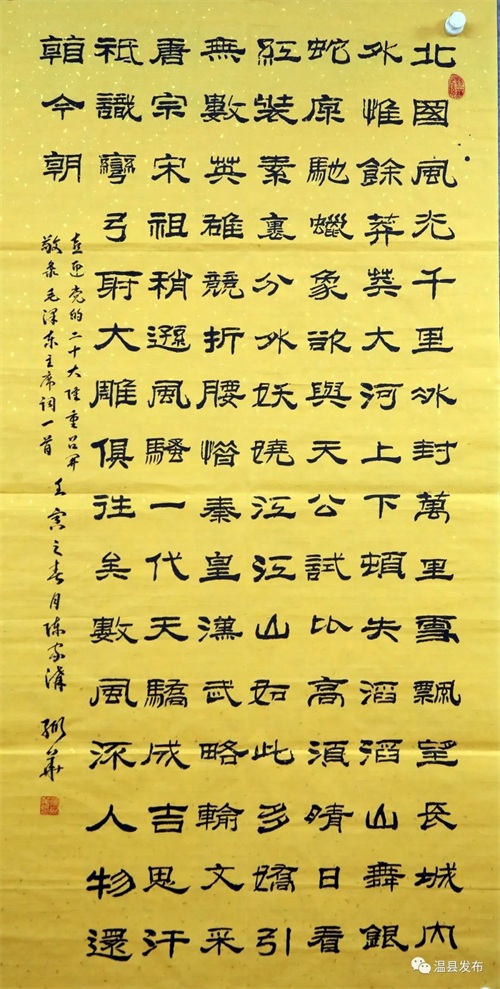 北國風光千里冰封萬里雪飄望長城內
外惟餘莽莽大河上下頓失滔滔山舞銀
蛇原馳蠟象欲與天公試比高須晴日看
紅裝素裹分外妖嬈江江山如此多嬌引
無數英雄競折腰惜秦皇漢武略輸文采
唐宗宋祖稍遜風騷一代天驕成吉思汗
祗識彎弓射大雕俱往矣數風流人物還
今朝
喜迎党的二十大隆重召开
敬录毛泽东主席词一首
壬寅之春月陈家溝 华
温县发布